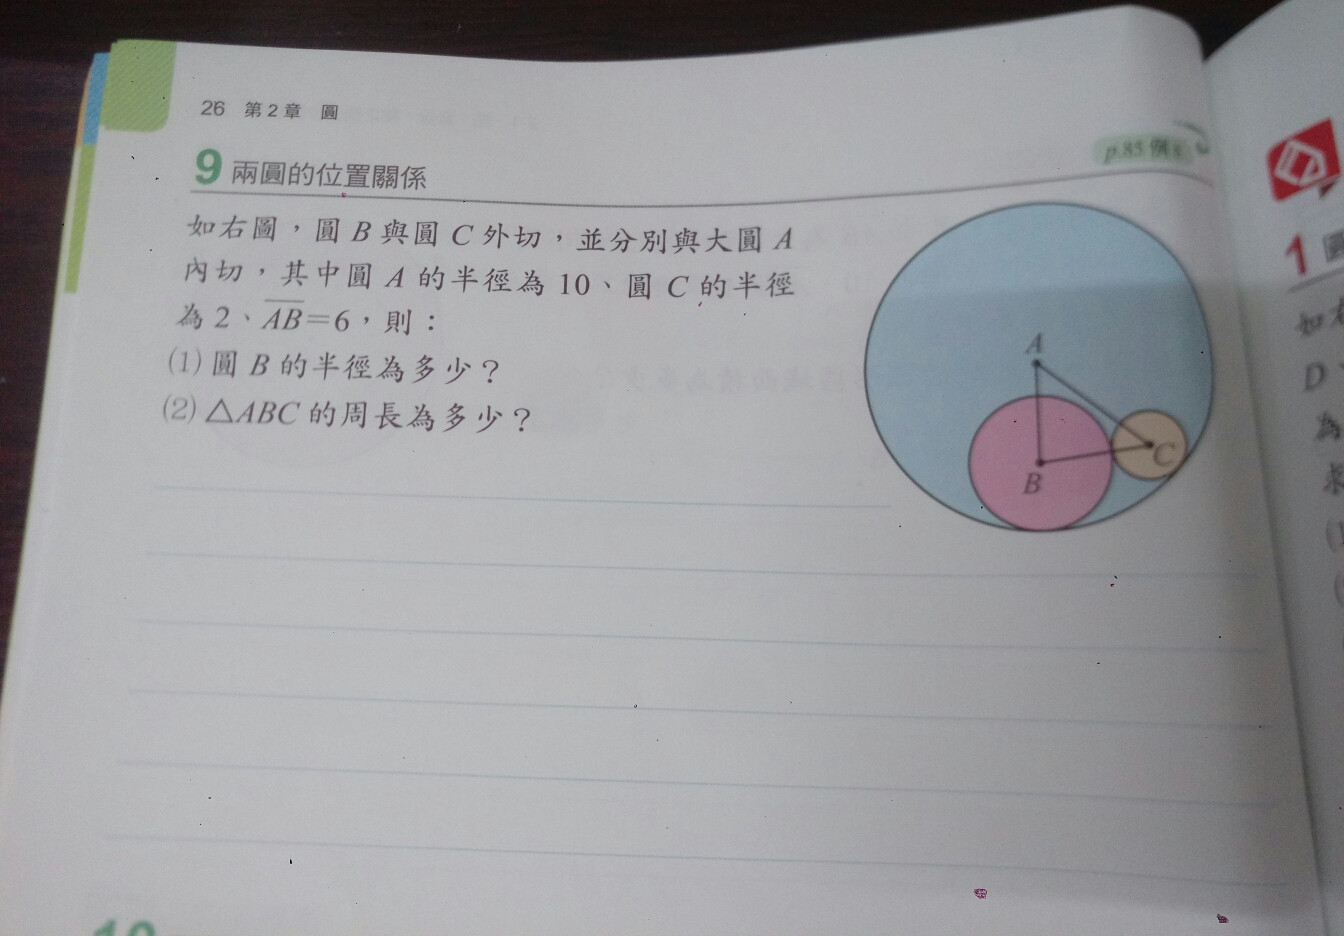 26 第2章 圓
9 兩圓的位置關係
p.85 例
如右圖，圓 B 與圓 C 外切，並分別與大圓 A
內切，其中圓 A 的半徑為 10、圓 C 的半徑
為 2、AB=6，則：
(1) 圓 B 的半徑為多少？
(2) △ABC 的周長為多少？
A
B
C
10
1 圓
如右
D、
為
求